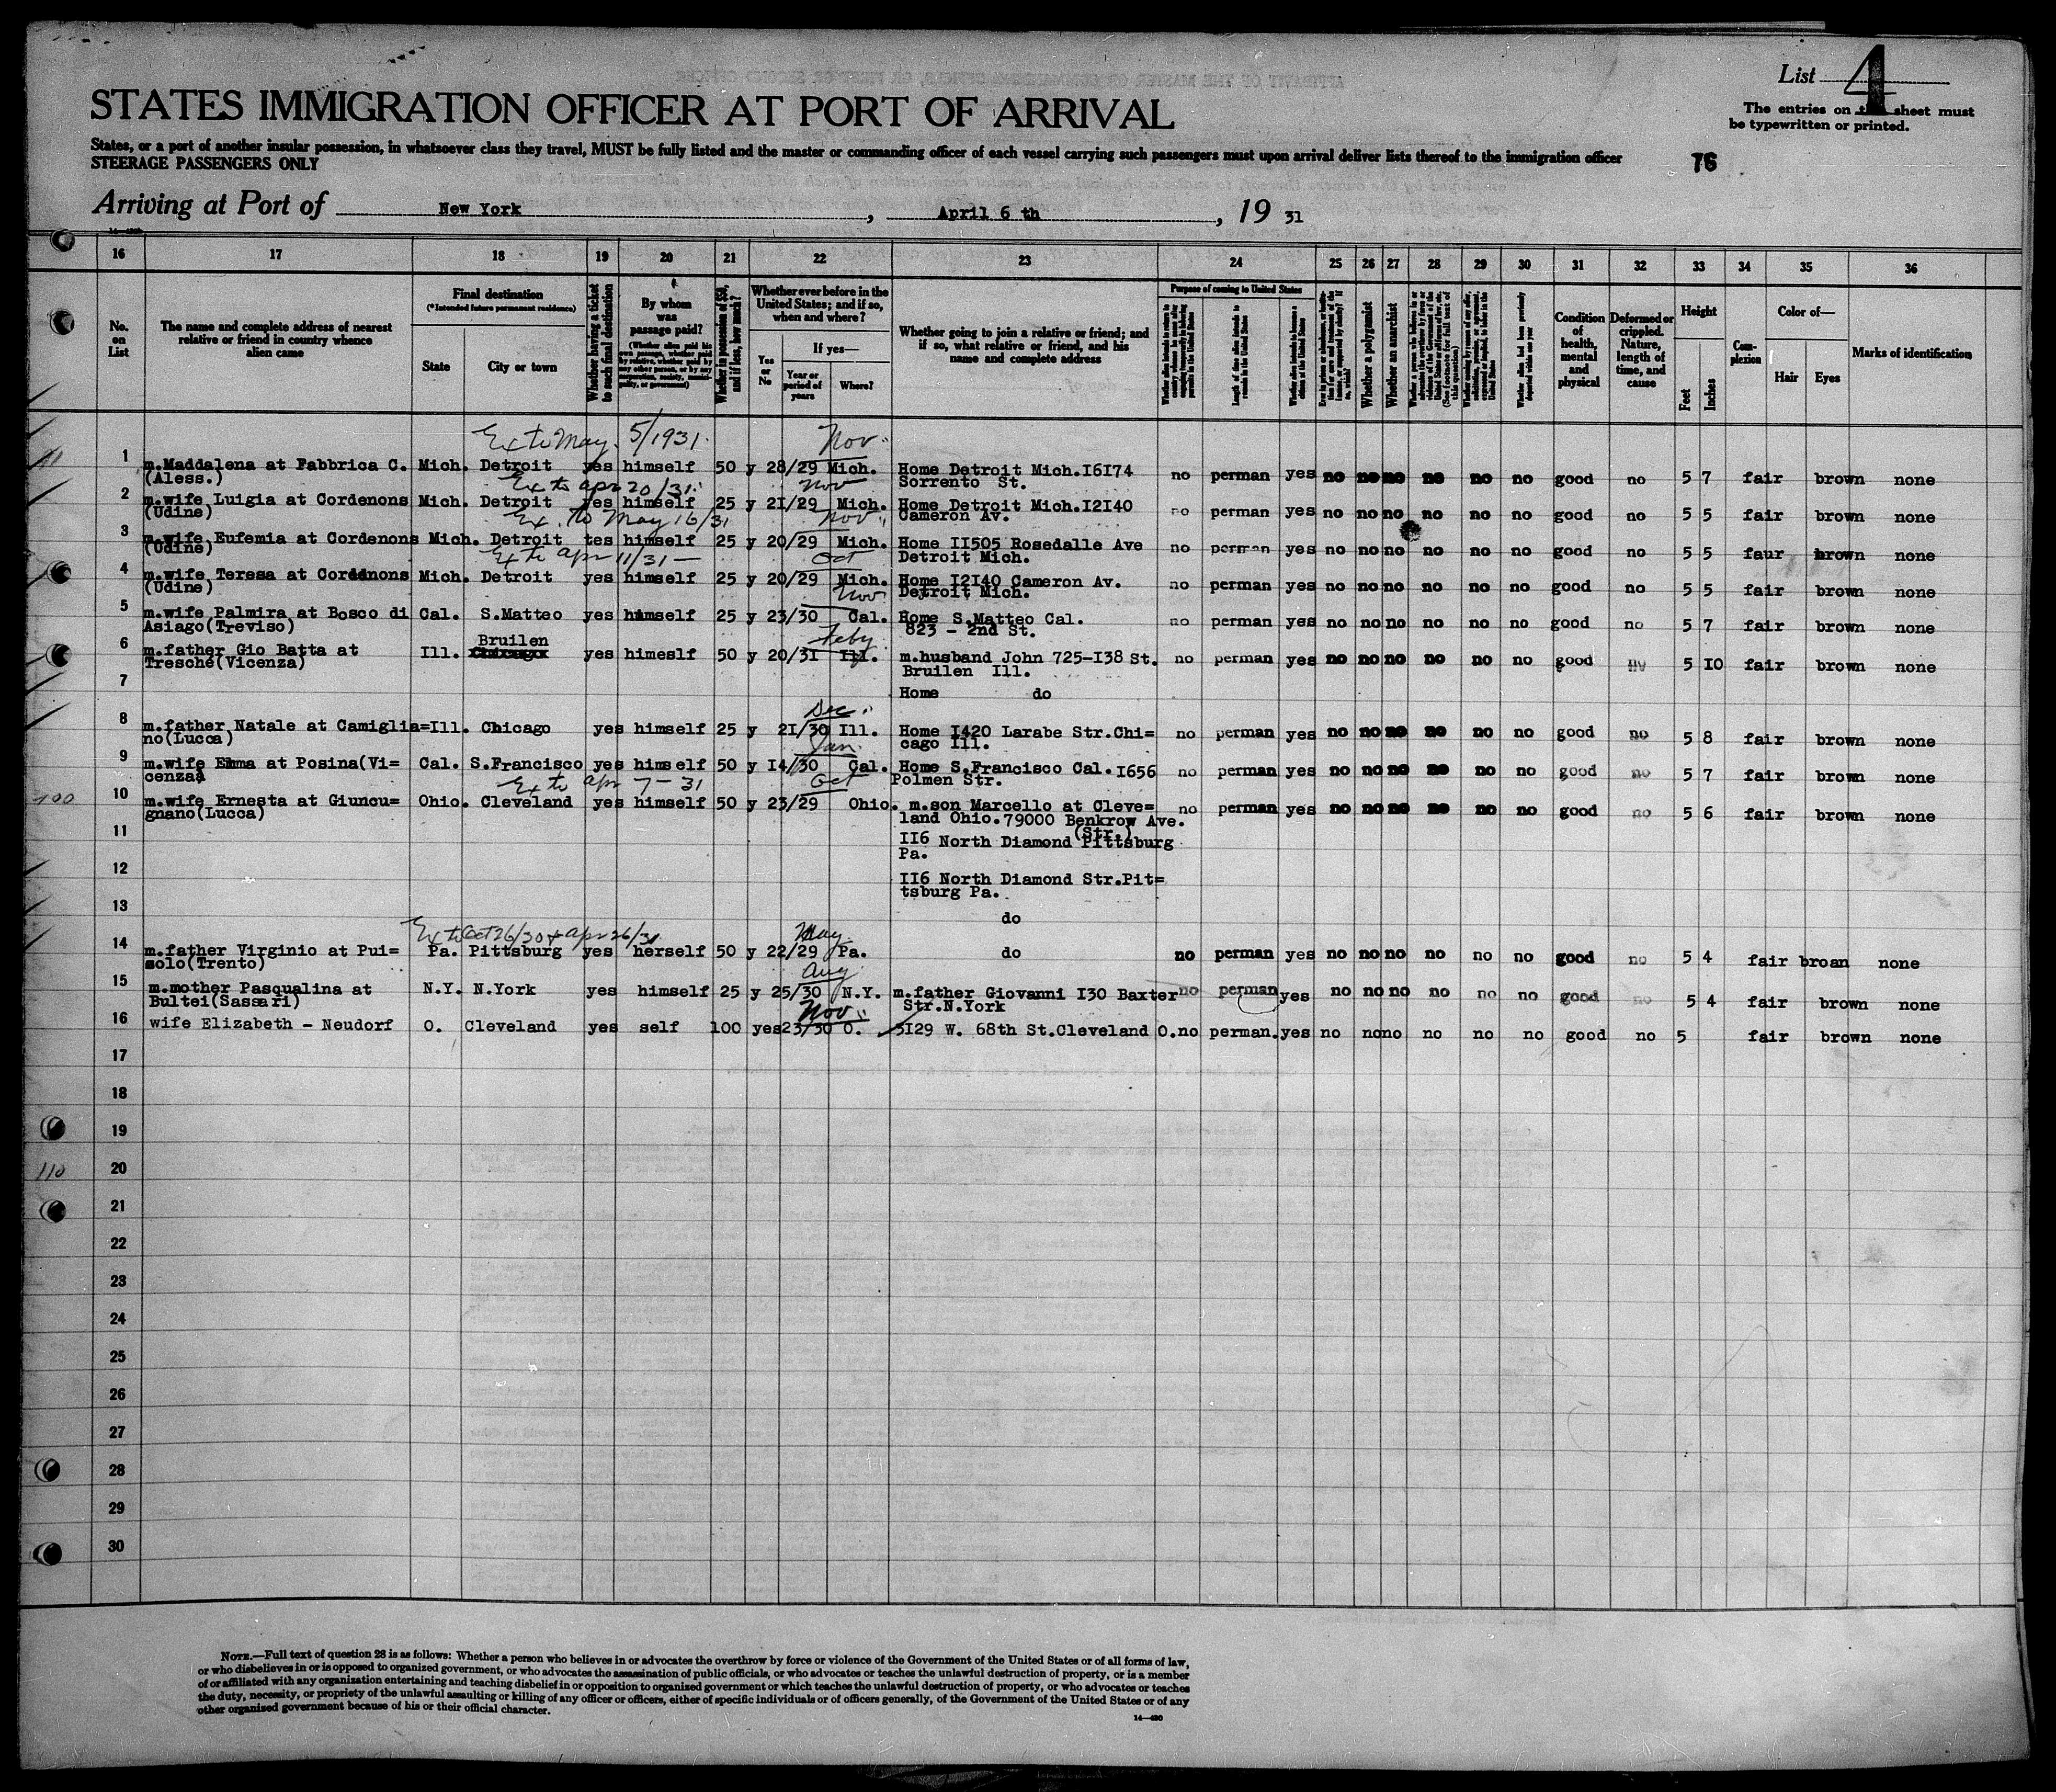 List 4
The entries on this sheet must
be typewritten or printed.
STATES IMMIGRATION OFFICER AT PORT OF ARRIVAL
States, or a port of another insular possession, in whatsoever class they travel, MUST be fully listed and the master or commanding officer of each vessel carrying such passengers must upon arrival deliver lists thereof to the immigration officer
STEERAGE PASSENGERS ONLY
76
Arriving at Port of New York, April 6 th, 19 31
16 17 18 19 20 21 22 23 24 25 26 27 28 29 30 31 32 33 34 35 36
No. on List
The name and complete address of nearest relative or friend in country whence alien came
Final destination
(*Intended future permanent residence)
State
City or town
Whether having a ticket to such final destination
By whom was passage paid?
(Whether alien paid his own passage, whether paid by relative, whether paid by any other person, or by any corporation, society, municipality, or government)
Whether in possession of $50, and if less, how much?
Whether ever before in the United States; and if so, when and where?
Yes or No
If yes—
Year or period of years
Where?
Whether going to join a relative or friend; and if so, what relative or friend, and his name and complete address
Purpose of coming to United States
Whether a polygamist
Whether an anarchist
Condition of health, mental and physical
Deformed or crippled. Nature, length of time, and cause
Height
Feet
Inches
Complexion
Color of—
Hair
Eyes
Marks of identification
Ex to May 5/1931. Nov.
1 m.Maddalena at Fabbrica C. Mich. Detroit yes himself 50 y 28/29 Mich. Home Detroit Mich.16174 no perman yes no no no no no no good no 5 7 fair brown none
(Aless.) Sorrento St.
Ex to apr 20/31. Nov
2 m.wife Luigia at Cordenons Mich. Detroit yes himself 25 y 21/29 Mich. Home Detroit Mich.12140 no perman yes no no no no no no good no 5 5 fair brown none
(Udine) Cameron Av.
Ex. to May 16/31 Nov.
3 m.wife Eufemia at Cordenons Mich. Detroit tes himself 25 y 20/29 Mich. Home 11505 Rosedalle Ave no perman yes no no no no no no good no 5 5 faur brown none
(Udine) Detroit Mich.
Ex to apr 11/31 — Oct
4 m.wife Teresa at Cordenons Mich. Detroit yes himself 25 y 20/29 Mich. Home 12140 Cameron Av. no perman yes no no no no no no good no 5 5 fair brown none
(Udine) Detroit Mich.
Nov
5 m.wife Palmira at Bosco di Cal. S.Matteo yes himself 25 y 23/30 Cal. Home S.Matteo Cal. no perman yes no no no no no no good no 5 7 fair brown none
Asiago(Treviso) 823 - 2nd St.
Bruilen Feby
6 m.father Gio Batta at Ill. yes himeslf 50 y 20/31 Ill. m.husband John 725-138 St. no perman yes no no no no no no good no 5 10 fair brown none
Tresche(Vicenza) Bruilen Ill.
7 Home do
Dec.
8 m.father Natale at Camiglia= Ill. Chicago yes himself 25 y 21/30 Ill. Home 1420 Larabe Str.Chi= no perman yes no no no no no no good no 5 8 fair brown none
no(Lucca) cago Ill.
Jan.
9 m.wife Emma at Posina(Vi= Cal. S.Francisco yes himself 50 y 14/30 Cal. Home S.Francisco Cal.1656 no perman yes no no no no no no good no 5 7 fair brown none
cenza) Polmen Str.
Ex to apr 7 - 31 Oct
100
10 m.wife Ernesta at Giuncu= Ohio. Cleveland yes himself 50 y 23/29 Ohio. m.son Marcello at Cleve= no perman yes no no no no no no good no 5 6 fair brown none
gnano(Lucca) land Ohio.79000 Benkrow Ave.
(Str.)
11 116 North Diamond Pittsburg
Pa.
12 116 North Diamond Str.Pit=
tsburg Pa.
13 do
Ex to Oct 26/30 + apr 26/31 May
14 m.father Virginio at Pui= Pa. Pittsburg yes herself 50 y 22/29 Pa. do no perman yes no no no no no no good no 5 4 fair broan none
solo(Trento)
Aug
15 m.mother Pasqualina at N.Y. N.York yes himself 25 y 25/30 N.Y. m.father Giovanni 130 Baxter no perman yes no no no no no no good no 5 4 fair brown none
Bultei(Sassari) Str.N.York
Nov.
16 wife Elizabeth - Neudorf O. Cleveland yes self 100 yes 23/30 O. 3129 W. 68th St.Cleveland O. no perman. yes no no no no no no good no 5 fair brown none
17
18
19
110
20
21
22
23
24
25
26
27
28
29
30
NOTE.—Full text of question 28 is as follows: Whether a person who believes in or advocates the overthrow by force or violence of the Government of the United States or of all forms of law,
or who disbelieves in or is opposed to organized government, or who advocates the assassination of public officials, or who advocates or teaches the unlawful destruction of property, or is a member
of or affiliated with any organization entertaining and teaching disbelief in or opposition to organized government or which teaches the unlawful destruction of property, or who advocates or teaches
the duty, necessity, or propriety of the unlawful assaulting or killing of any officer or officers, either of specific individuals or of officers generally, of the Government of the United States or of any
other organized government because of his or their official character.
14—420